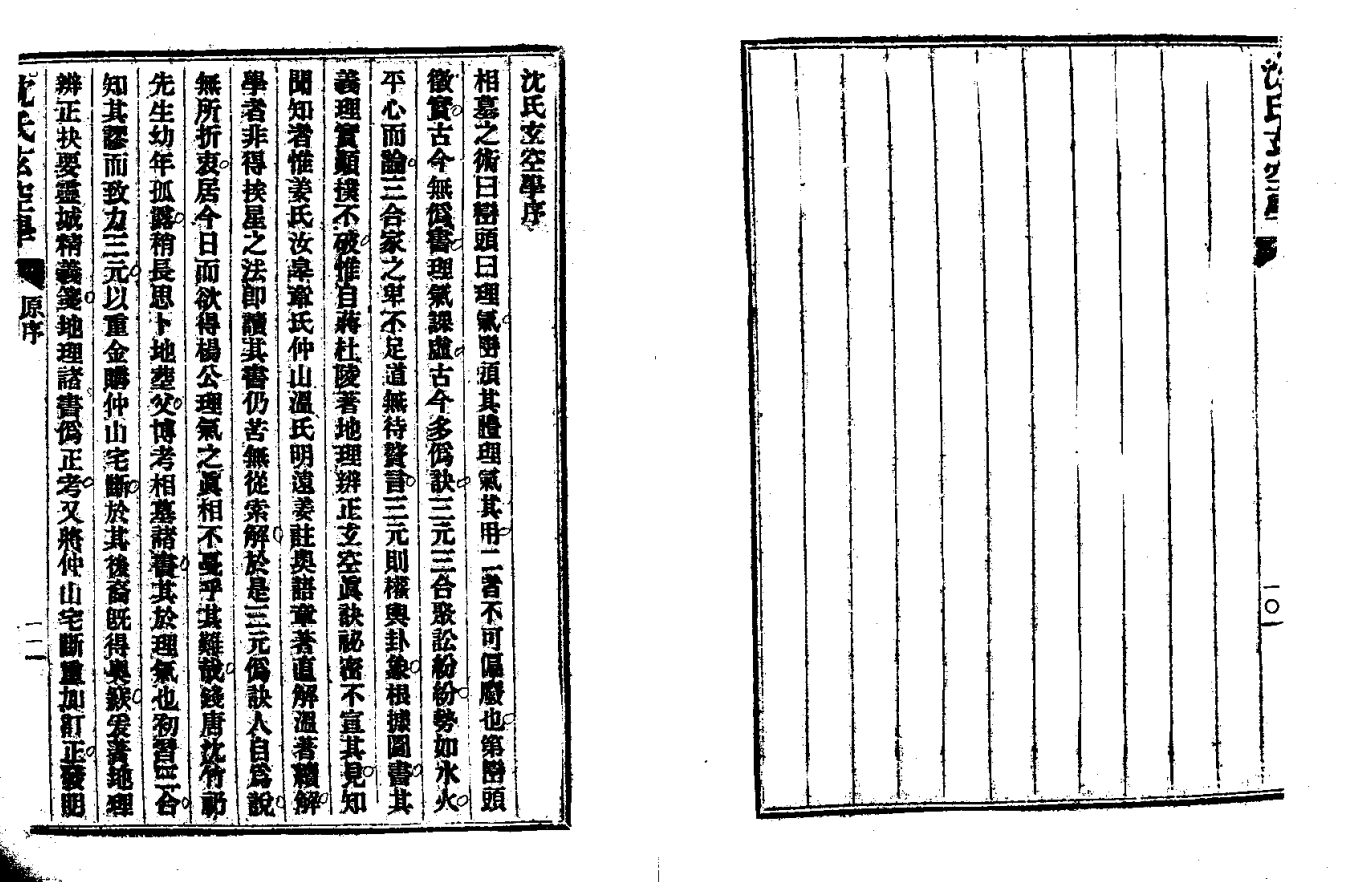 沈氏玄空學
一〇
沈氏玄空學序
相墓之術曰巒頭曰理氣。巒頭其體理氣其用。二者不可偏廢也。第巒頭
徵實。古今無僞書。理氣課虛。古今多僞訣。三元三合聚訟紛紛。勢如水火。
平心而論。三合家之卑不足道無待贅言。三元則權輿卦象。根據圖書。其
義理實顚撲不破。惟自蔣杜陵著地理辨正玄空眞訣祕密不宣其見。知
聞知者惟姜氏汝皋章氏仲山溫氏明遠姜註奧語章著直解溫著續解。
學者非得挨星之法卽讀其書仍苦無從索解。於是三元僞訣人自爲說。
無所折衷。居今日而欲得楊公理氣之眞相不戞乎其難哉。錢唐沈竹礽
先生幼年孤露。稍長思卜地葬父。博考相墓諸書。其於理氣也初習三合。
知其謬而致力三元。以重金購仲山宅斷。於其後裔旣得奧窽。爰著地理
辨正抉要靈城精義箋。地理諸書僞正考。又將仲山宅斷重加訂正。發明
沈氏玄空學
原序
一一